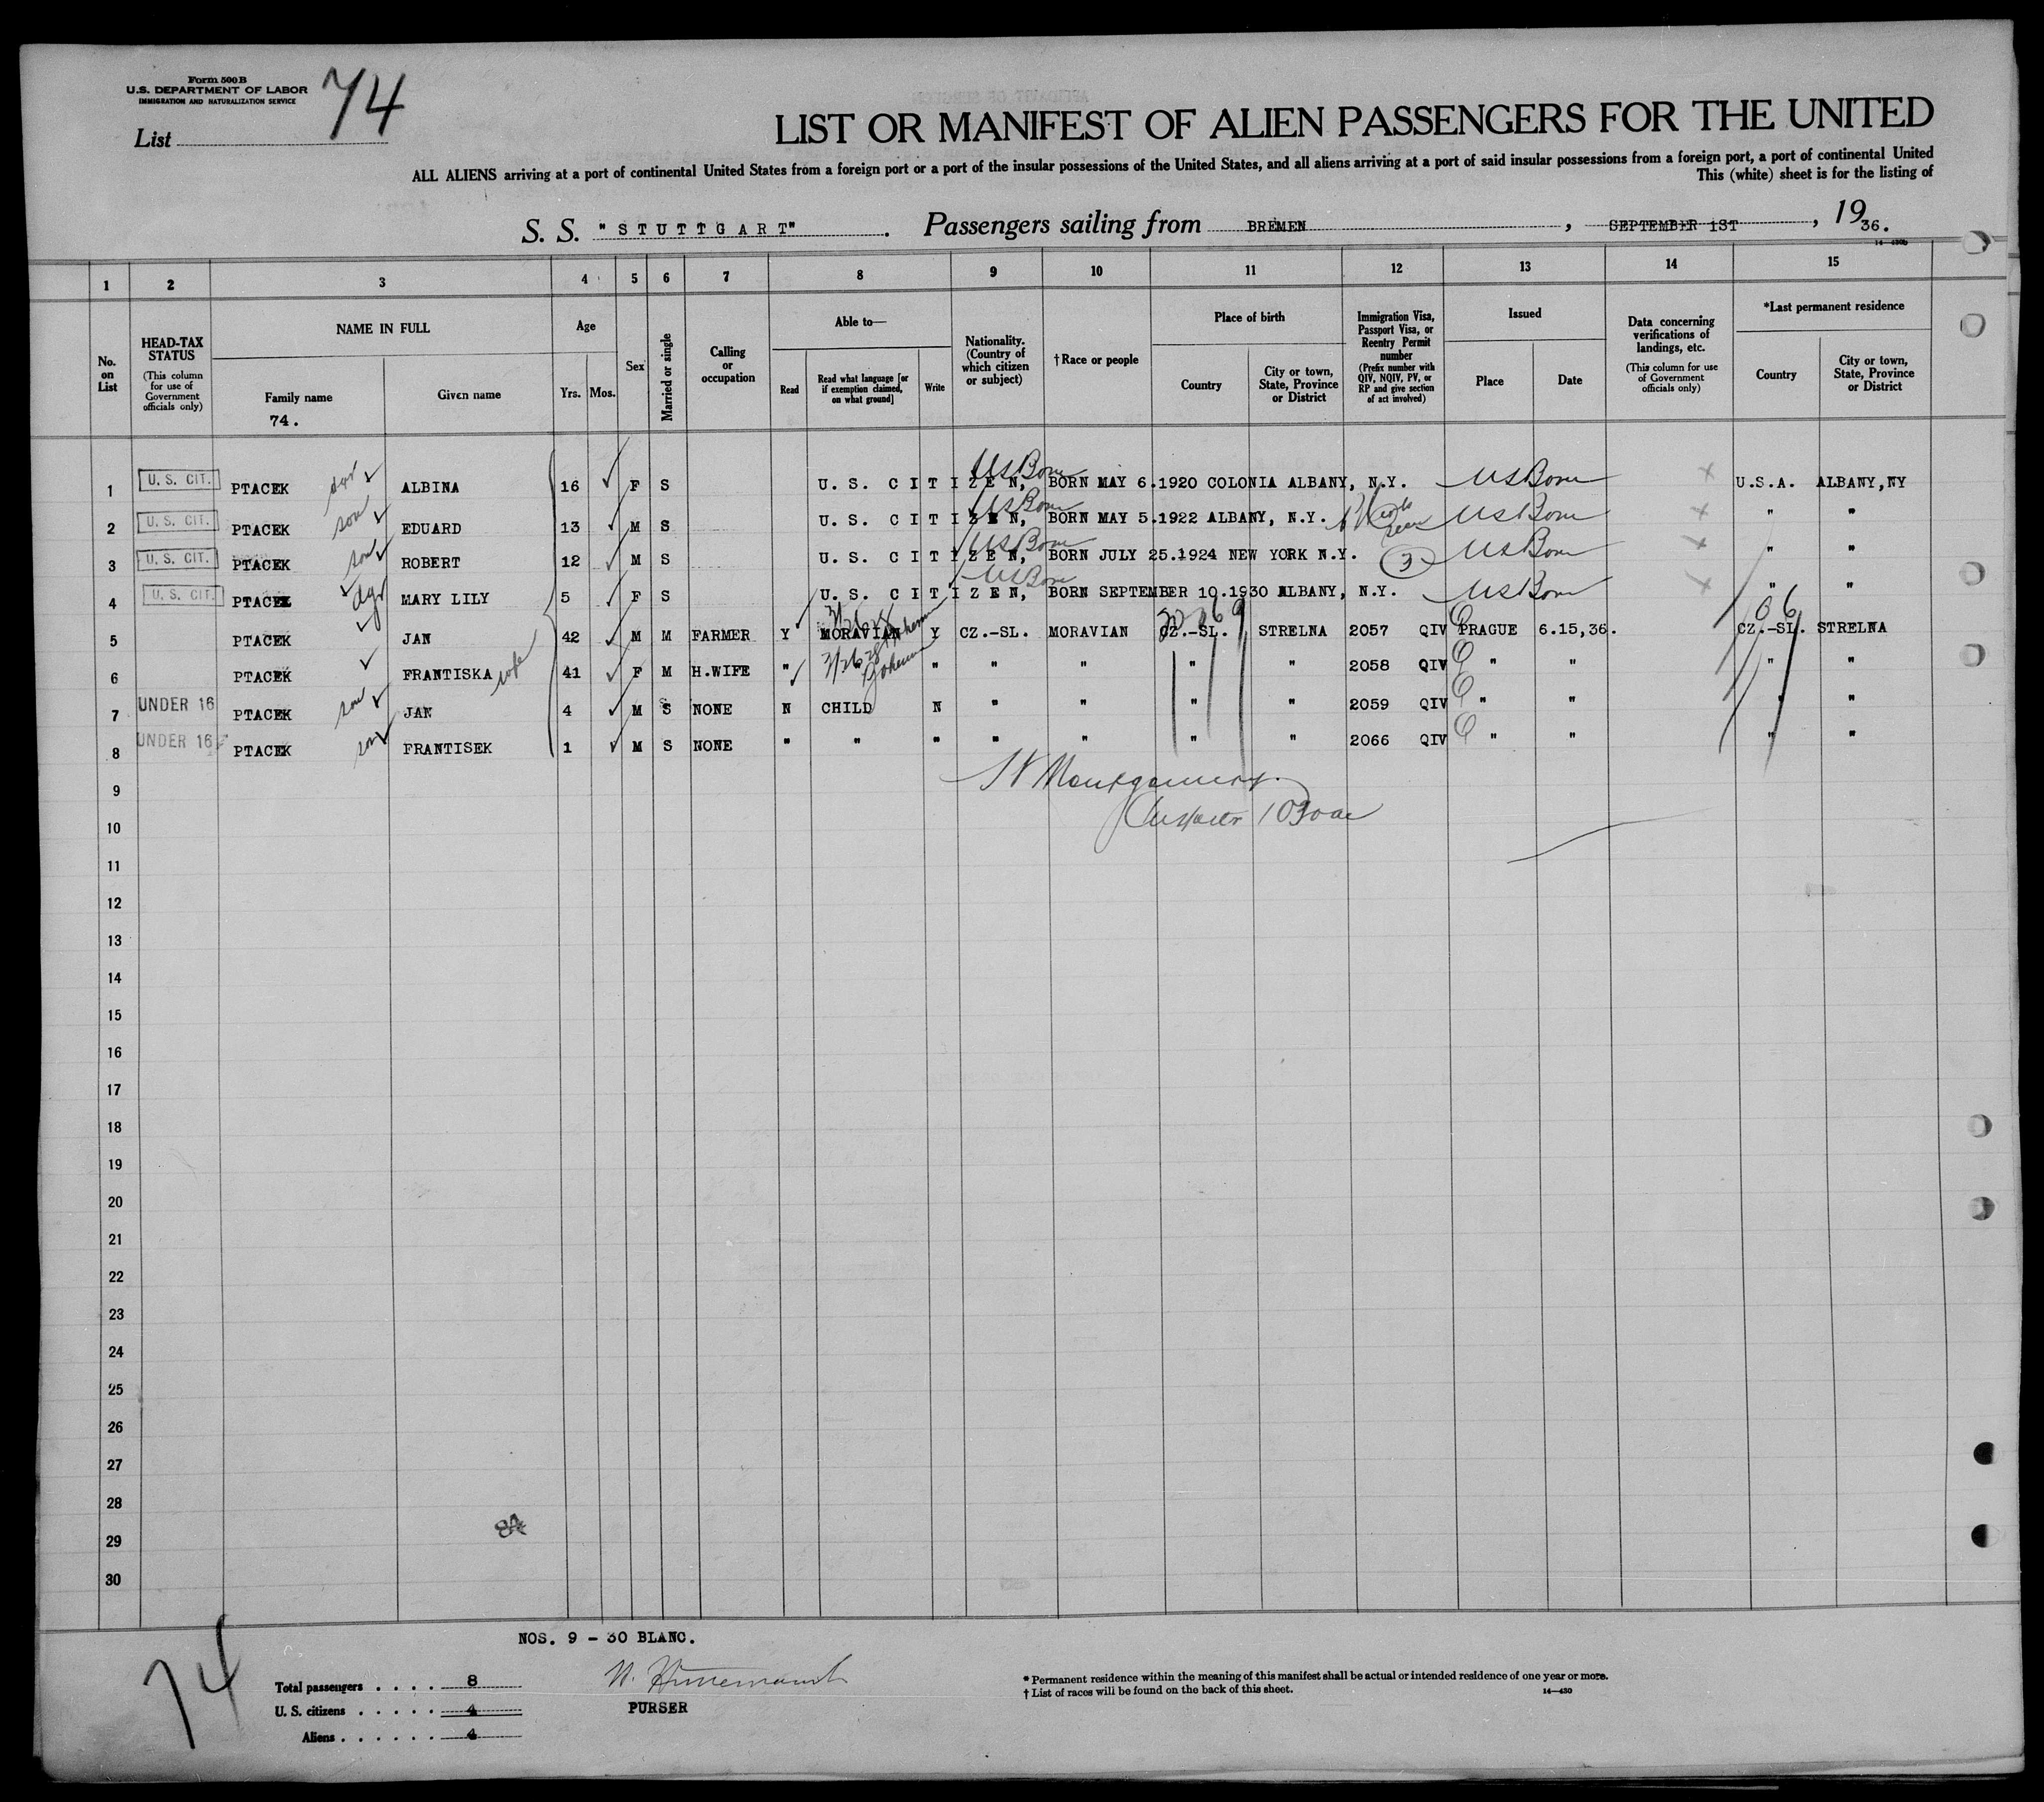 Form 500 B
U.S. DEPARTMENT OF LABOR
IMMIGRATION AND NATURALIZATION SERVICE
74
List
LIST OR MANIFEST OF ALIEN PASSENGERS FOR THE UNITED
ALL ALIENS arriving at a port of continental United States from a foreign port or a port of the insular possessions of the United States, and all aliens arriving at a port of said insular possessions from a foreign port, a port of continental United
This (white) sheet is for the listing of
S. S. "STUTTGART". Passengers sailing from BREMEN, SEPTEMBER 1ST, 1936.
14—430b
1 2 3 4 5 6 7 8 9 10 11 12 13 14 15
No. on List
HEAD-TAX STATUS (This column for use of Government officials only)
NAME IN FULL
Family name
Given name
74.
Age
Yrs. Mos.
Sex
Married or single
Calling or occupation
Able to—
Read
Read what language [or if exemption claimed, on what ground]
Write
Nationality. (Country of which citizen or subject)
†Race or people
Place of birth
Country
City or town, State, Province or District
Immigration Visa, Passport Visa, or Reentry Permit number (Prefix number with QIV, NQIV, PV, or RP and give section of act involved)
Issued
Place
Date
Data concerning verifications of landings, etc. (This column for use of Government officials only)
*Last permanent residence
Country
City or town, State, Province or District
1 U. S. CIT. PTACEK dgr ALBINA 16 F S U. S. CITIZEN, US Born BORN MAY 6.1920 COLONIA ALBANY, N.Y. US Born U.S.A. ALBANY,NY
2 U. S. CIT. PTACEK son EDUARD 13 M S U. S. CITIZEN, US Born BORN MAY 5.1922 ALBANY, N.Y. US Born " "
3 U. S. CIT. PTACEK son ROBERT 12 M S U. S. CITIZEN, US Born BORN JULY 25.1924 NEW YORK N.Y. 3 US Born " "
4 U. S. CIT. PTACEK dgr MARY LILY 5 F S U. S. CITIZEN, US Born BORN SEPTEMBER 10.1930 ALBANY, N.Y. US Born " "
5 PTACEK JAN 42 M M FARMER Y MORAVIAN Y CZ.-SL. MORAVIAN CZ.-SL. STRELNA 2057 QIV PRAGUE 6.15,36. 06 CZ.-SL. STRELNA
6 PTACEK FRANTISKA wife 41 F M H.WIFE " Bohemian " " " " " 2058 QIV " " " "
7 UNDER 16 PTACEK son JAN 4 M S NONE N CHILD N " " " " 2059 QIV " " " "
8 UNDER 16 PTACEK son FRANTISEK 1 M S NONE " " " " " " " 2066 QIV " " " "
9 Montgomery
10
11
12
13
14
15
16
17
18
19
20
21
22
23
24
25
26
27
28
29
30
NOS. 9 - 30 BLANC.
74
Total passengers . . . . 8
U. S. citizens . . . . . 4
Aliens . . . . . . 4
PURSER
* Permanent residence within the meaning of this manifest shall be actual or intended residence of one year or more.
† List of races will be found on the back of this sheet.
14—430